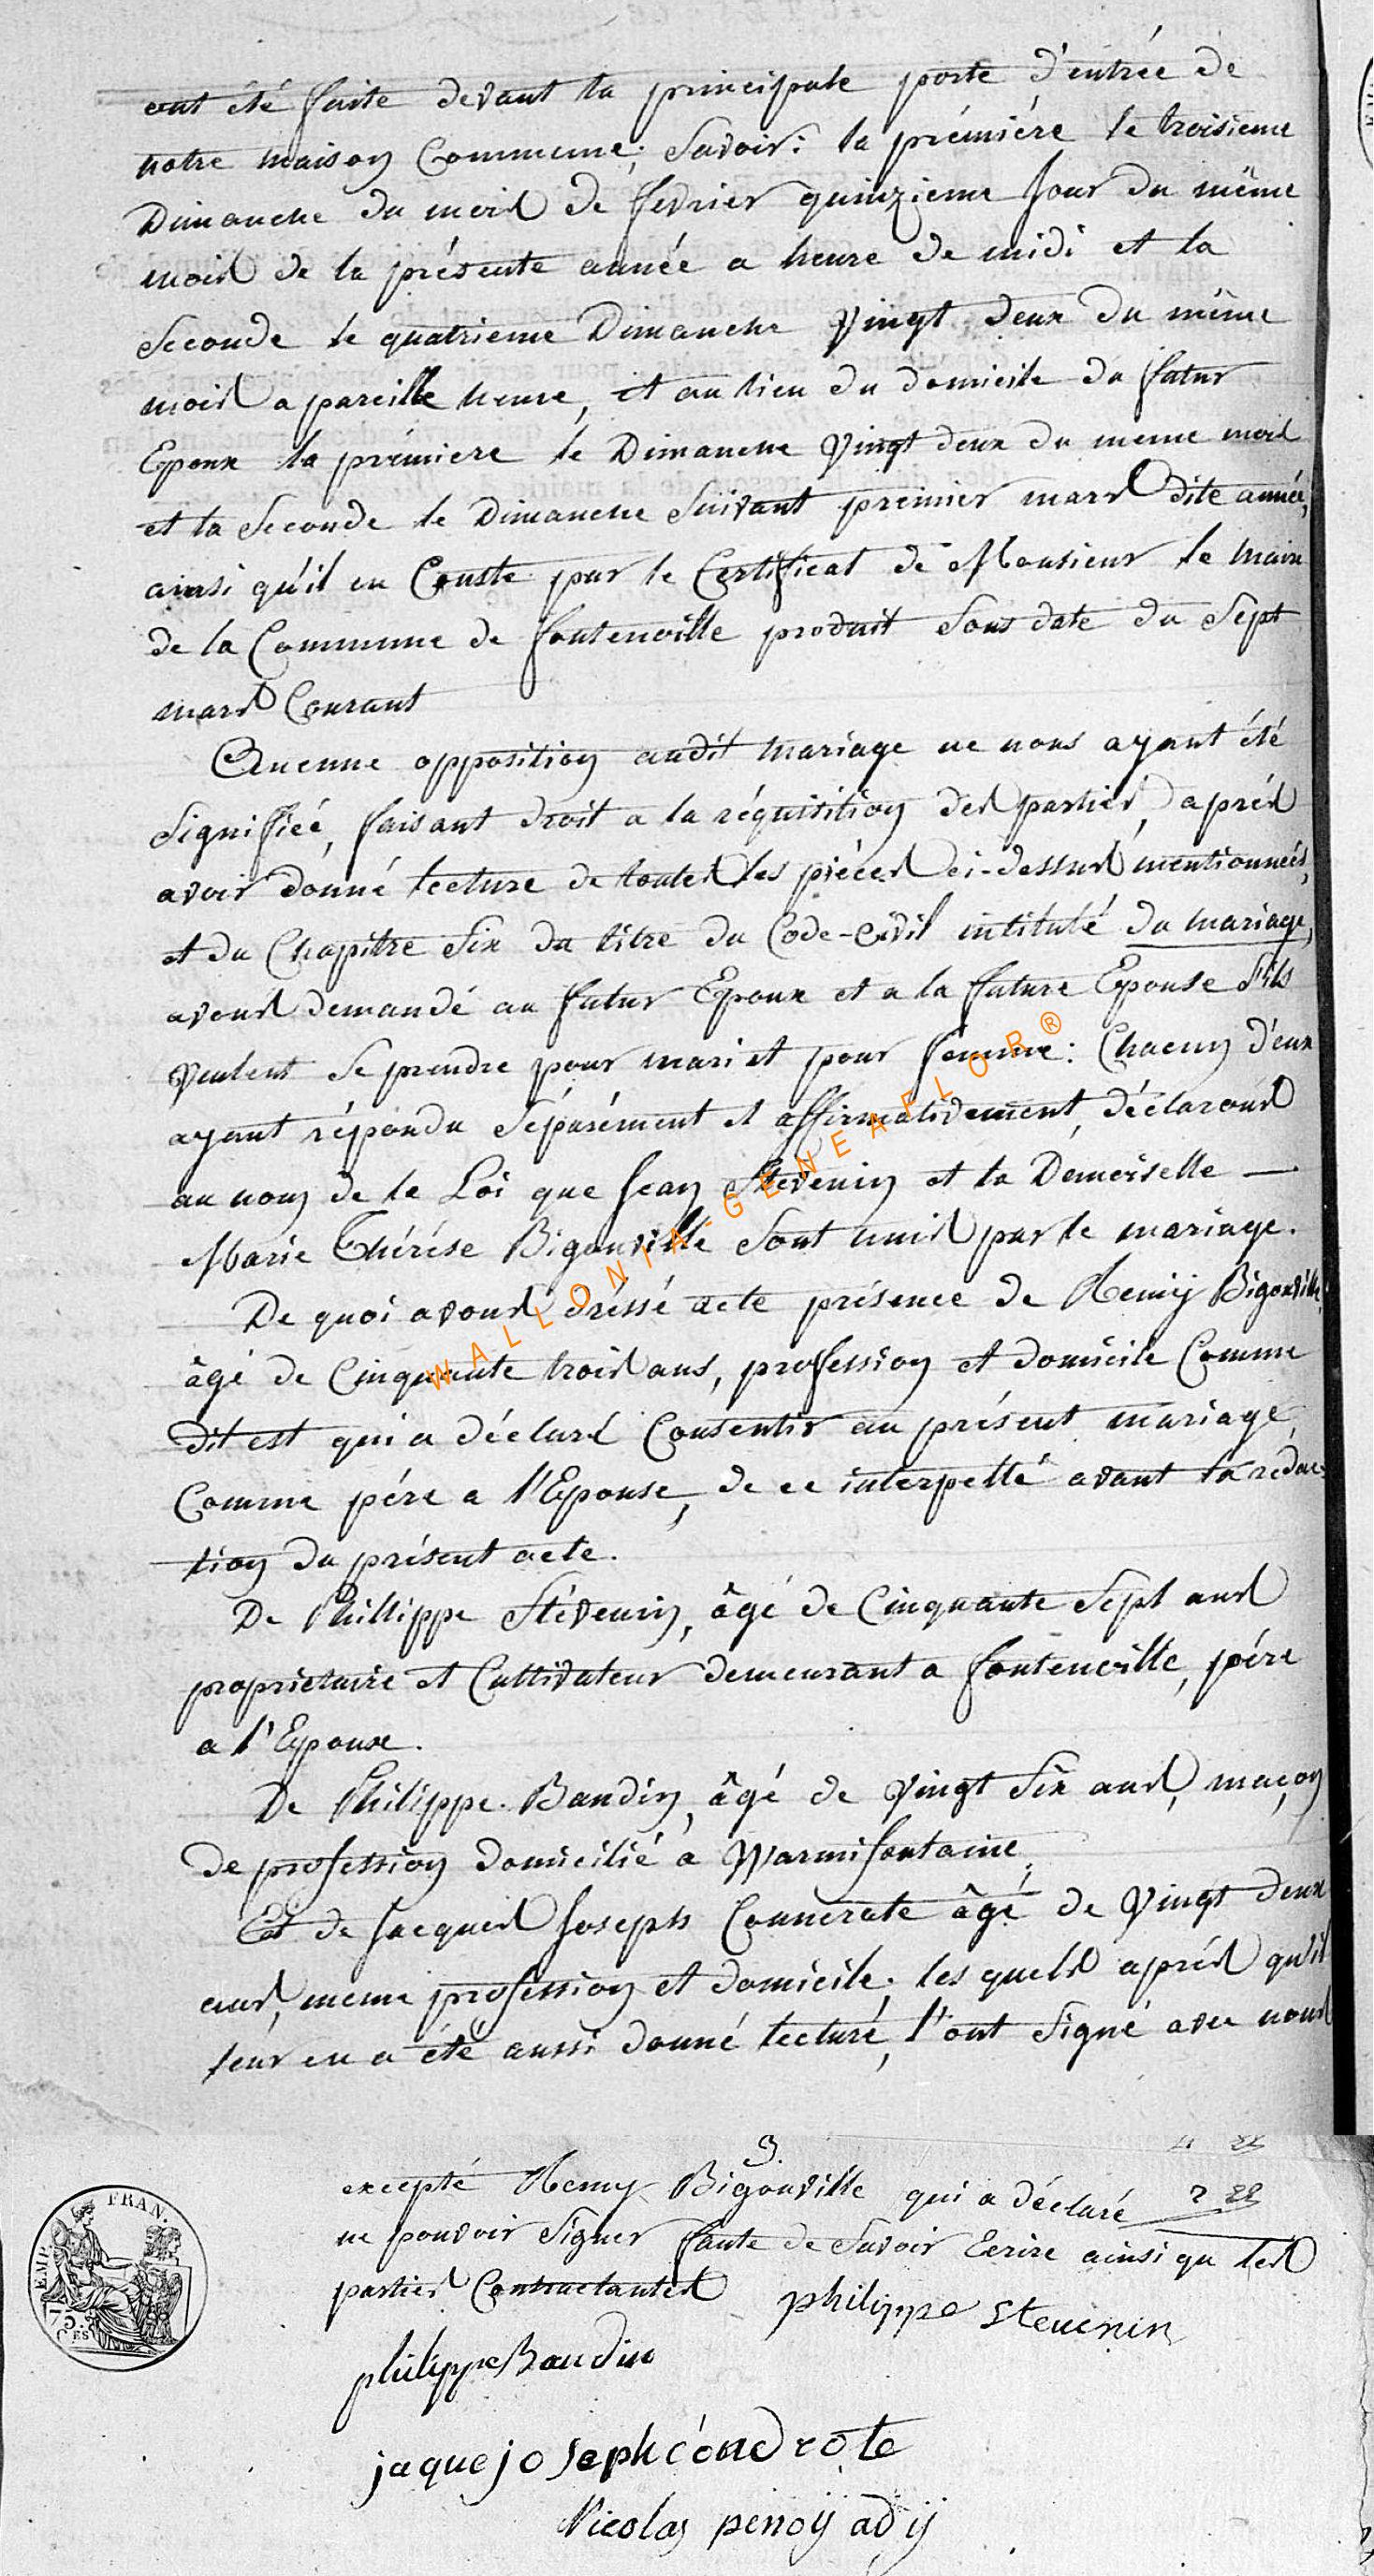 ont été faite devant la principale porte d'entrée de
notre maison Commune; Savoir: la prémiére le troisieme
Dimanche du mois de fevrier quinzieme Jour du même
mois de la présente année a heure de midi et la
Seconde le quatrieme Dimanche vingt deux du même
mois a pareille heure, et au lieu du domicile du futur
Epoux la prémiere le Dimanche vingt deux du meme mois
et la Seconde le Dimanche Suivant premier mars dite année,
ainsi qu'il en Conste par le Certificat de Monsieur le Maire
de la Commune de fontenoille produit Sous date du Sept
mars Courant
Aucune opposition audit mariage ne nous ayant été
Signifiée, faisant droit a la réquisition des parties, aprés
avoir donné lecture de toutes les piéces ci-dessus mentionnées,
et du Chapitre Six du titre du Code-Civil intitulé du mariage,
avons demandé au futur Epoux et a la future Epouse S'ils
veulent Se prendre pour mari et pour femme: Chacun d'eux
ayant répondu Séparément et affirmativement, déclarons
au nom de la Loi que Jean Stevenin et la Demoiselle —
Marie Thérése Bigonville Sont unis par le mariage.
De quoi avons dréssé acte présence de Remij Bigonville,
âgé de Cinquante trois ans, profession et domicile Comme
dit est qui a déclaré Consentir au présent mariage,
Comme pére a l'Epouse, de ce interpellé avant la rédac-
tion du présent acte.
De Phillippe Stévenin, âgé de Cinquante Sept ans
proprietaire et Cultivateur demeurant a fontenoille, pére
a l'Epoux.
De Philippe Baudin, âgé de vingt Six ans, maçon
de profession domicilié a Warmifontaine,
Et de Jacques Joseph Connerate âgé de vingt deux
ans, meme profession et domicile; les quels aprés qu'il
leur en a été aussi donné lecture, l'ont Signé avec nous
3.
excepté Remy Bigonville qui a déclaré
ne pouvoir Signer faute de Savoir Ecrire ainsi que les
parties Contractantes philippe stevenin
philippe Baudin
jaque joseph cóndrote
Nicolas penoÿ adÿ
EMP. FRAN.
75. CES
WALLONIA-GENEAFLOR®